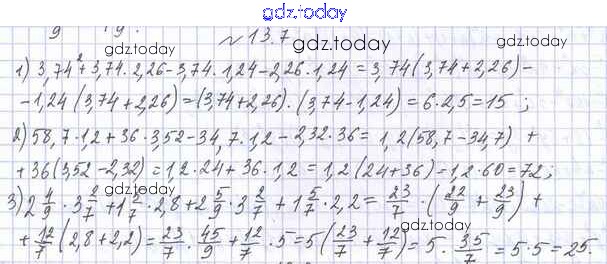 gdz.today
9 19.
gdz.today № 13.7 gdz.today
1) 3,74² + 3,74 · 2,26 - 3,74 · 1,24 - 2,26 · 1,24 = 3,74 (3,74 + 2,26) -
- 1,24 (3,74 + 2,26) = (3,74 + 2,26) · (3,74 - 1,24) = 6 · 2,5 = 15 ;
gdz.today gdz.today
2) 58,7 · 1,2 + 36 · 3,52 - 34,7 · 1,2 - 2,32 · 36 = 1,2 (58,7 - 34,7) +
+ 36 (3,52 - 2,32) = 1,2 · 24 + 36 · 1,2 = 1,2 (24 + 36) = 1,2 · 60 = 72 ;
gdz.today
3) 2 4/9 · 3 2/7 + 1 5/7 · 2,8 + 2 5/9 · 3 2/7 + 1 5/7 · 2,2 = 23/7 · (22/9 + 23/9) +
gdz.today
+ 12/7 (2,8 + 2,2) = 23/7 · 45/9 + 12/7 · 5 = 5 (23/7 + 12/7) = 5 · 35/7 = 5 · 5 = 25.